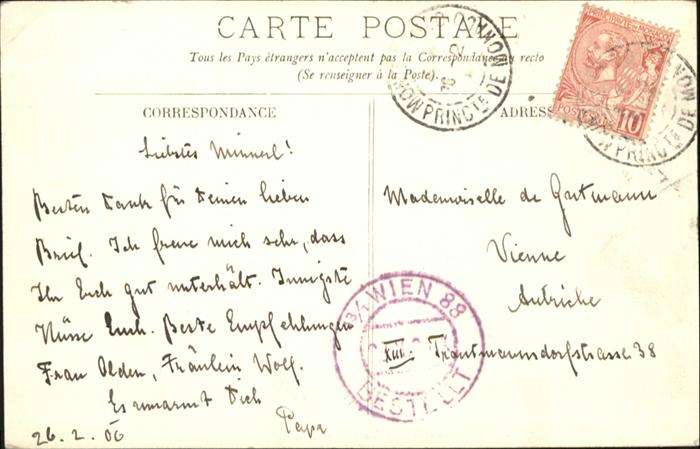 CARTE POSTALE
Tous les Pays étrangers n'acceptent pas la Correspondance au recto
(Se renseigner à la Poste).
CORRESPONDANCE
Liebstes Minnerl!
Besten Dank für Deinen lieben
Brief. Ich freue mich sehr, dass
Ihr Euch gut unterhält. Innigste
Küsse Euch. Beste Empfehlungen
Frau Olden, Fräulein Wolf.
Es umarmt Dich
Papa
26.2.06
ADRESSE
Mademoiselle de Gutmann
Vienne
Autriche
XIII. Trautmanndorfstrasse 38
10
PRINCTE DE MON
PRINCTE DE
WIEN 88
BESTELLT